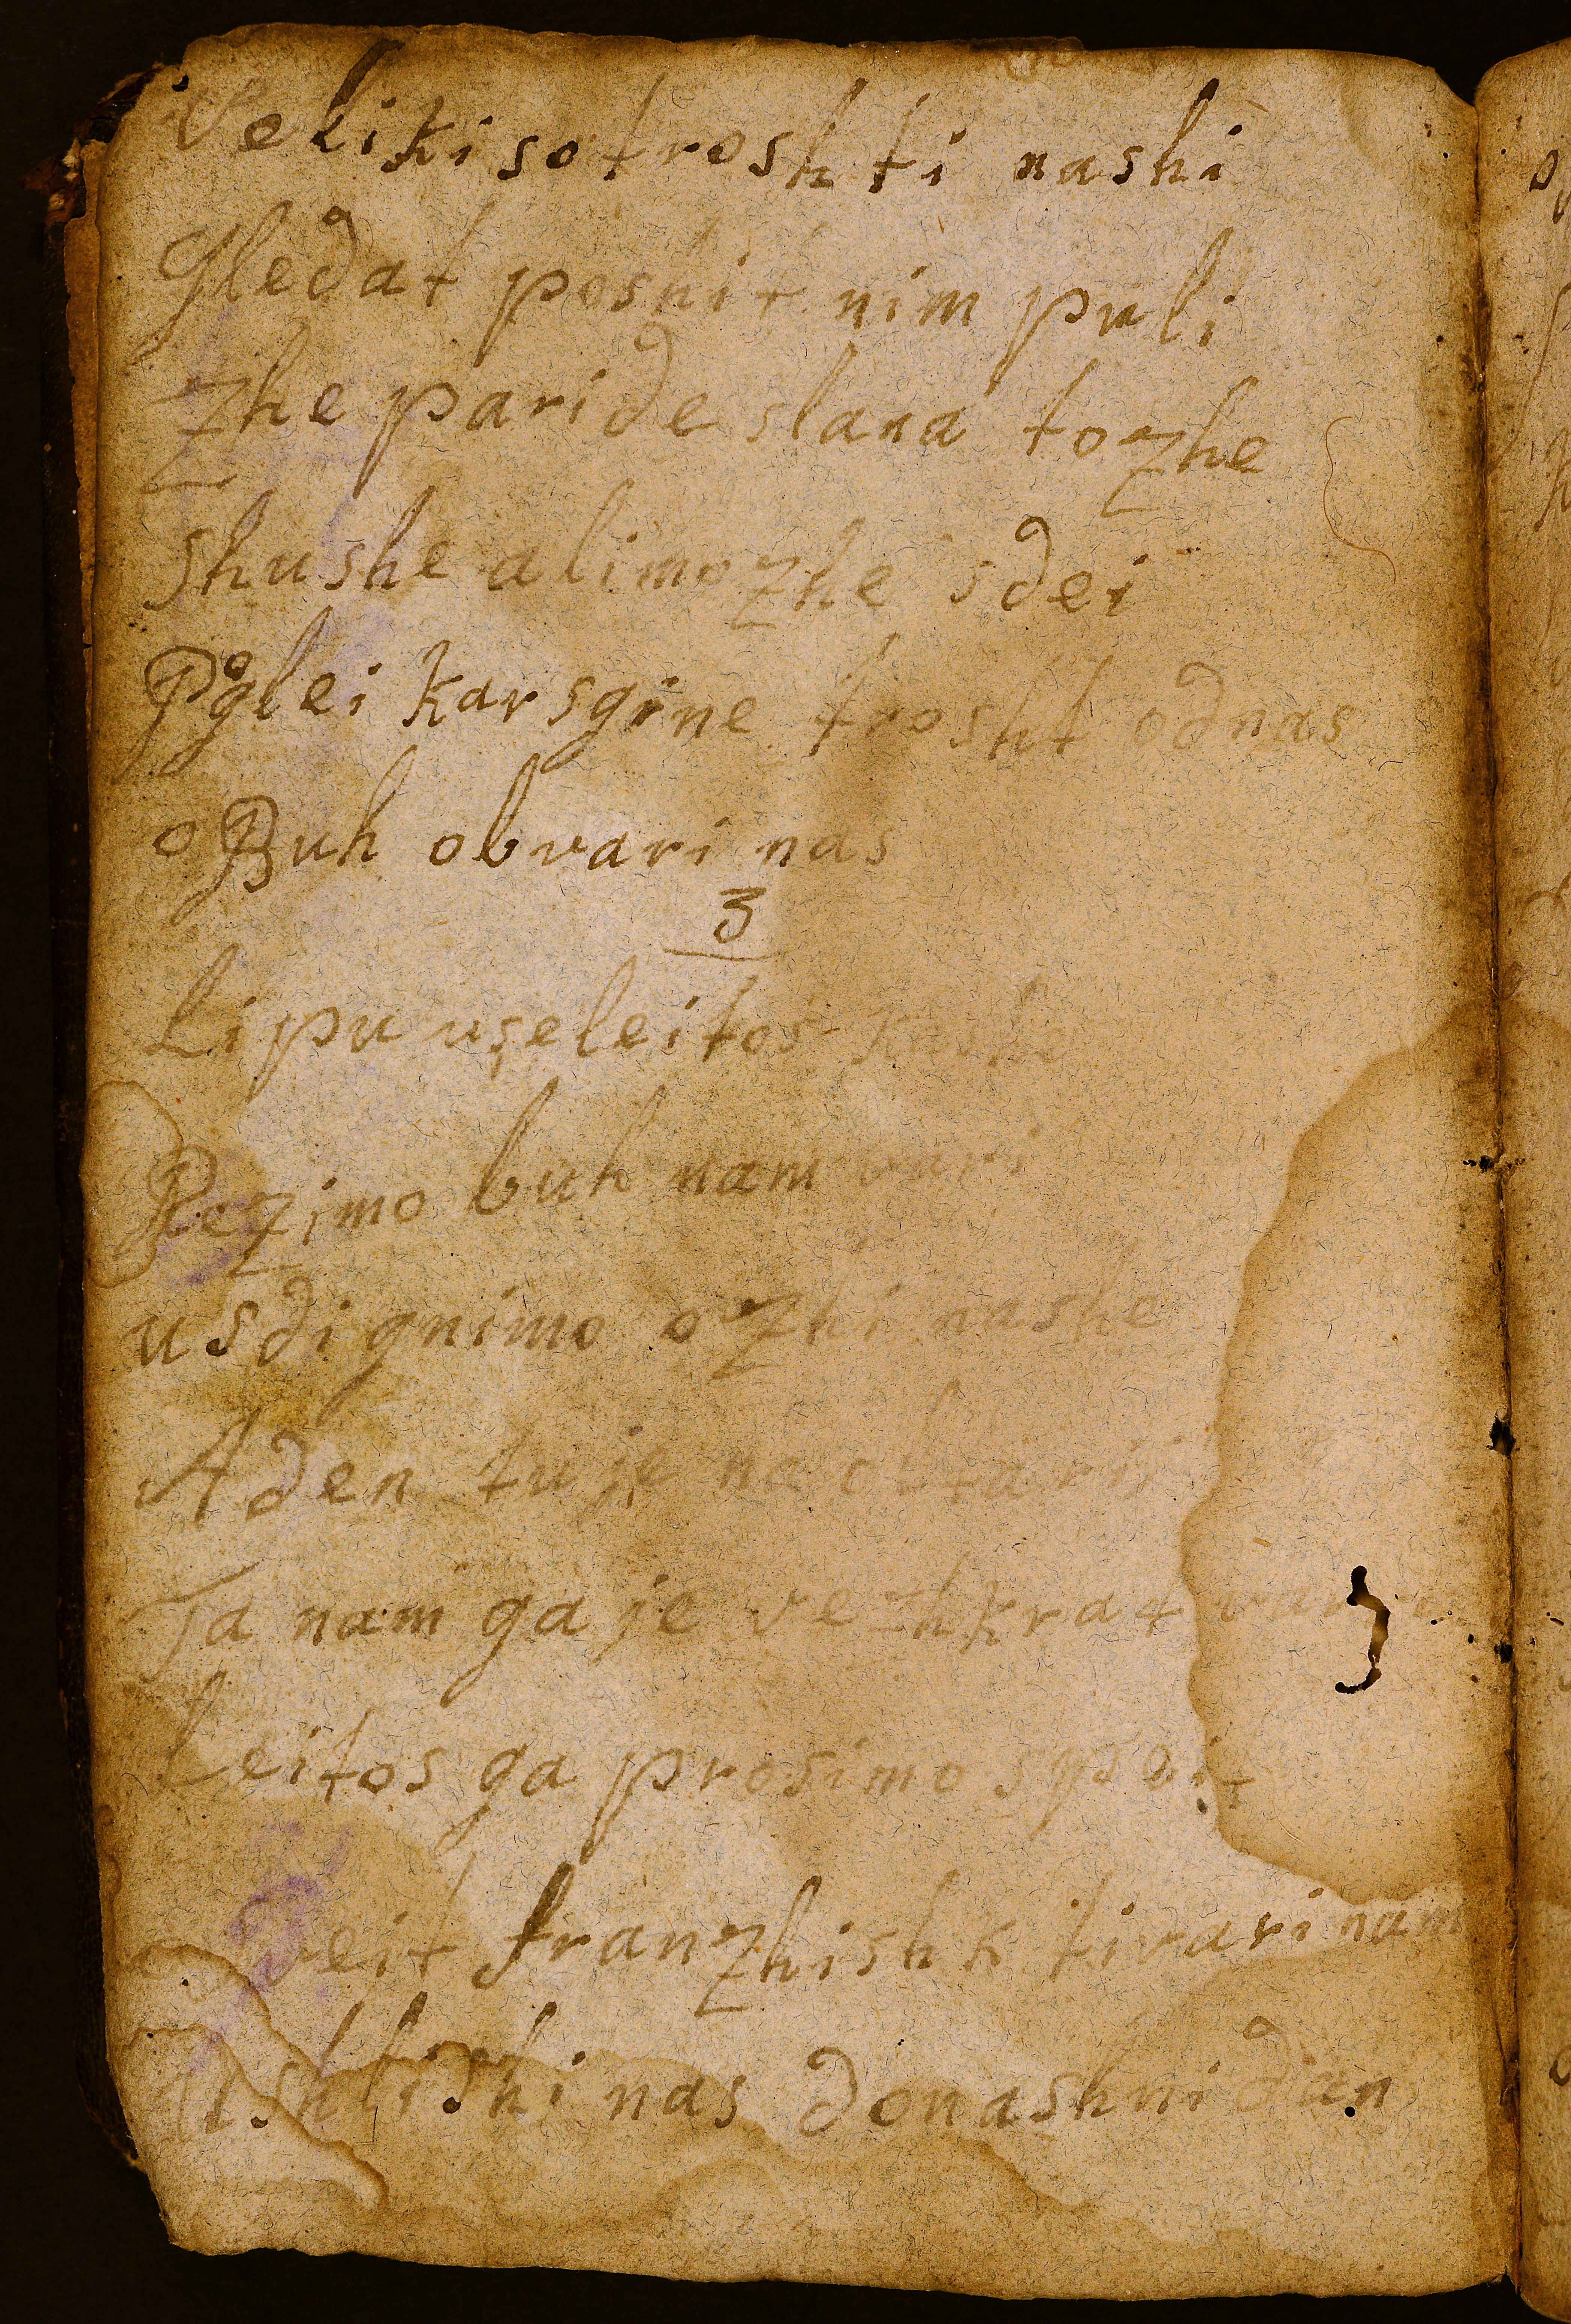 Velikiso troshti nashi
Gledat poshit nim puli
Zhe paride slana tozhe
shushe alimozhe sdei
Poglei karsgine trosht odnas
o Buh obvari nas
3
Lipu useleitos
Rezimo buh nam vari
usdignimo ozhi nashe
Aden tuje na oltarii
Ta nam gaje vezhkrat
Leitos ga prosimo
veit franzhishk tivari nam
Ushlishi nas donashni dan